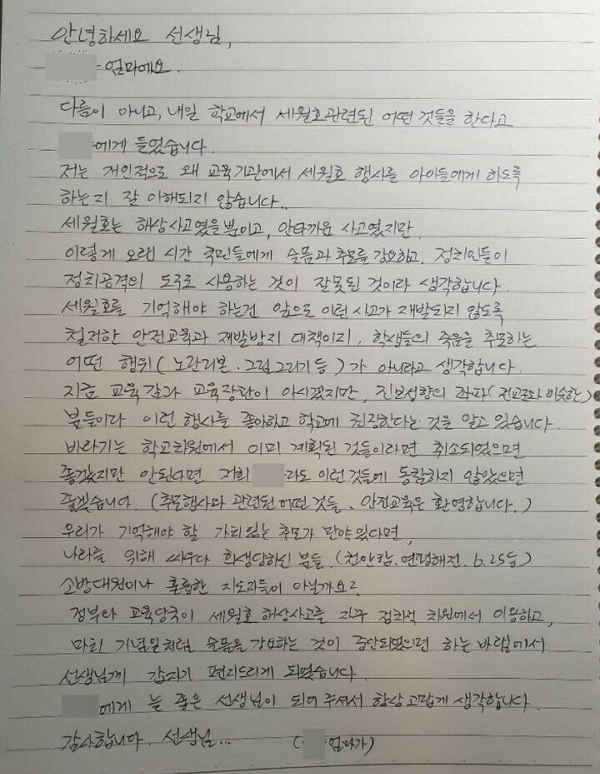 안녕하세요 선생님,
엄마예요.
다름이 아니고, 내일 학교에서 세월호관련된 어떤 것들을 한다고
에게 들었습니다.
저는 개인적으로 왜 교육기관에서 세월호 행사를 아이들에게 하도록
하는지 잘 이해되지 않습니다..
세월호는 해상사고였을뿐이고, 안타까운 사고였지만
이렇게 오랜 시간 국민들에게 슬픔과 추모를 강요하고, 정치인들이
정치공격의 도구로 사용하는 것이 잘못된 것이라 생각합니다.
세월호를 기억해야 하는건 앞으로 이런 사고가 재발되지 않도록
철저한 안전교육과 재발방지 대책이지, 학생들의 죽음을 추모하는
어떤 행위(노란리본.그림그리기 등)가 아니라고 생각합니다.
지금 교육감과 교육장관이 아시겠지만, 진보성향의 좌파(전교조와 비슷한)
분들이라 이런 행사를 좋아하고 학교에 권장한다는 것을 알고 있습니다.
바라기는 학교차원에서 이미 계획된 것들이라면 취소되었으면
좋겠지만 안된다면 저희 라도 이런 것들에 동참하지 않았으면
좋겠습니다. (추모행사와 관련된 어떤 것들, 안전교육은 환영합니다.)
우리가 기억해야 할 가치있는 추모가 만약 있다면,
나라를 위해 싸우다 희생당하신 분들 (천안함.연평해전.6.25등)
소방대원이나 훌륭한 지도자들이 아닐까요?
정부와 교육당국이 세월호 해상사고를 자꾸 정치적 차원에서 이용하고,
마치 기념일처럼 슬픔을 강요하는 것이 중단되었으면 하는 바램에서
선생님께 갑자기 편지드리게 되었습니다.
에게 늘 좋은 선생님이 되어 주셔서 항상 고맙게 생각합니다.
감사합니다. 선생님... ( 엄마가)